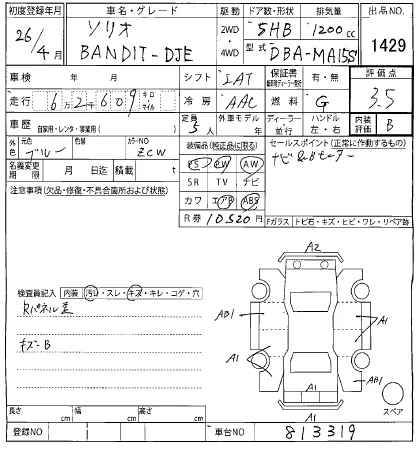 初度登録年月 車名・グレード 駆動 ドア数・形状 排気量 出品NO.
26年/4月 ソリオ BANDIT-DJE 2WD・4WD 5HB 1200cc 1429
型式 DBA-MA15S
車検 年 月 シフト IAT 保証書 有・無 評価点 3.5
走行 62609 キロ マイル 冷房 AAC 燃料 G
車歴 自家用・レンタ・事業用( ) 定員 5人 外車モデル 年 ディーラー・並行 ハンドル 左・右 内装評価 B
外色 元色 ブルー 色替 カラーNO ZCW
名義変更期限 月 日迄 積載 t
装備品(純正品に限る)
PS PW AW
SR TV ナビ
カワ エアB ABS
R券 10520円
セールスポイント(正常に作動するもの)
注意事項(欠品・修復・不具合箇所および状態)
Fガラス トビ石・キズ・ヒビ・ワレ・リペア跡
検査員記入 内装 汚れ・スレ・キズ・キレ・コゲ・穴
キズ-B
A2
AB1
A1
A1
A1
AB1
A1
スペア
長さ cm 幅 cm 高さ cm
登録NO 車台NO 813319